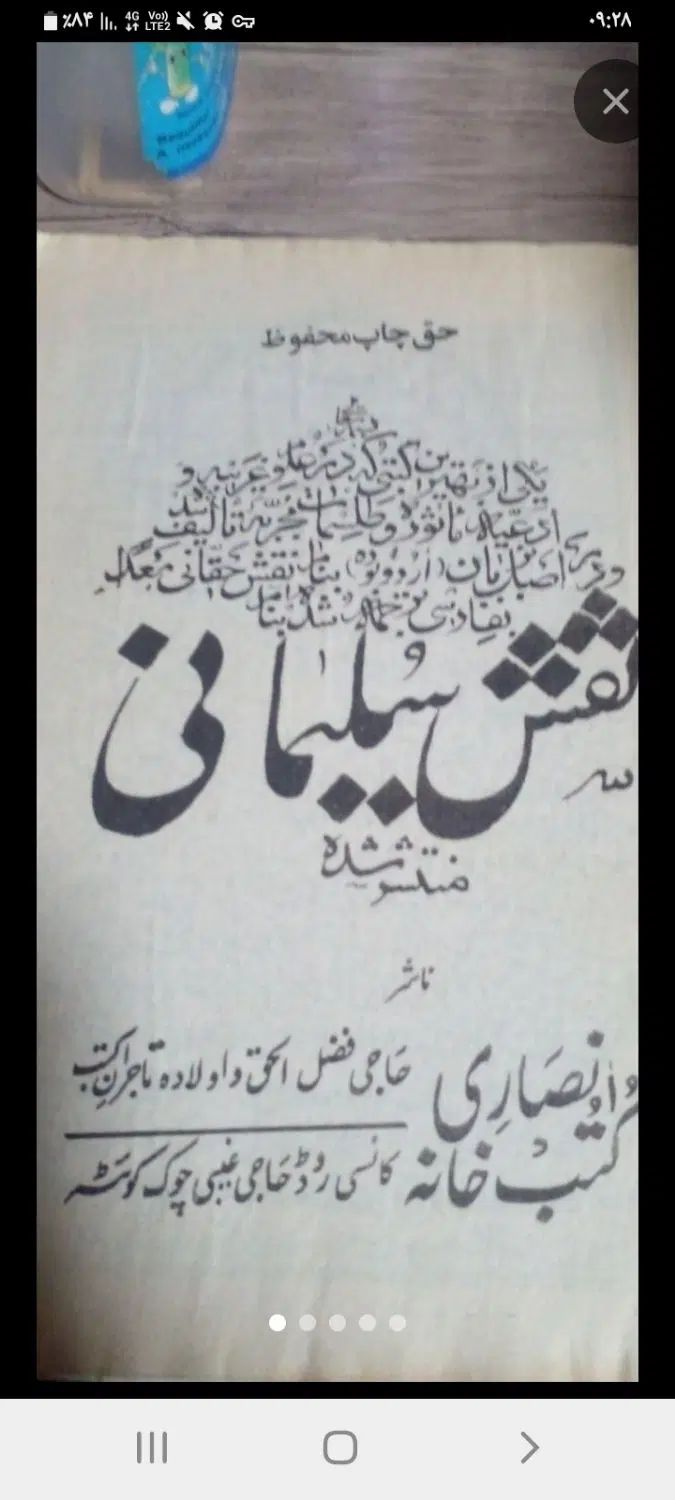 ٪۸۴ 4G Vo)) LTE2 ۰۹:۲۸
حق چاپ محفوظ
یکی از بهترین کتبی که در دعا و غریبه و
ادعیه ماثوره و طلسمات مجربه تألیف شد
و در اصبل زبان (اردو بوده) بنام نقش حقانی بعداً
بفارسی ترجمه شد بنام
نقش سلیمانی
منتشر شده
ناشر
انصاری کتب خانه
حاجی فضل الحق و اولاده تاجران کتب
کانسی روڈ حاجی غیبی چوک کوئٹہ